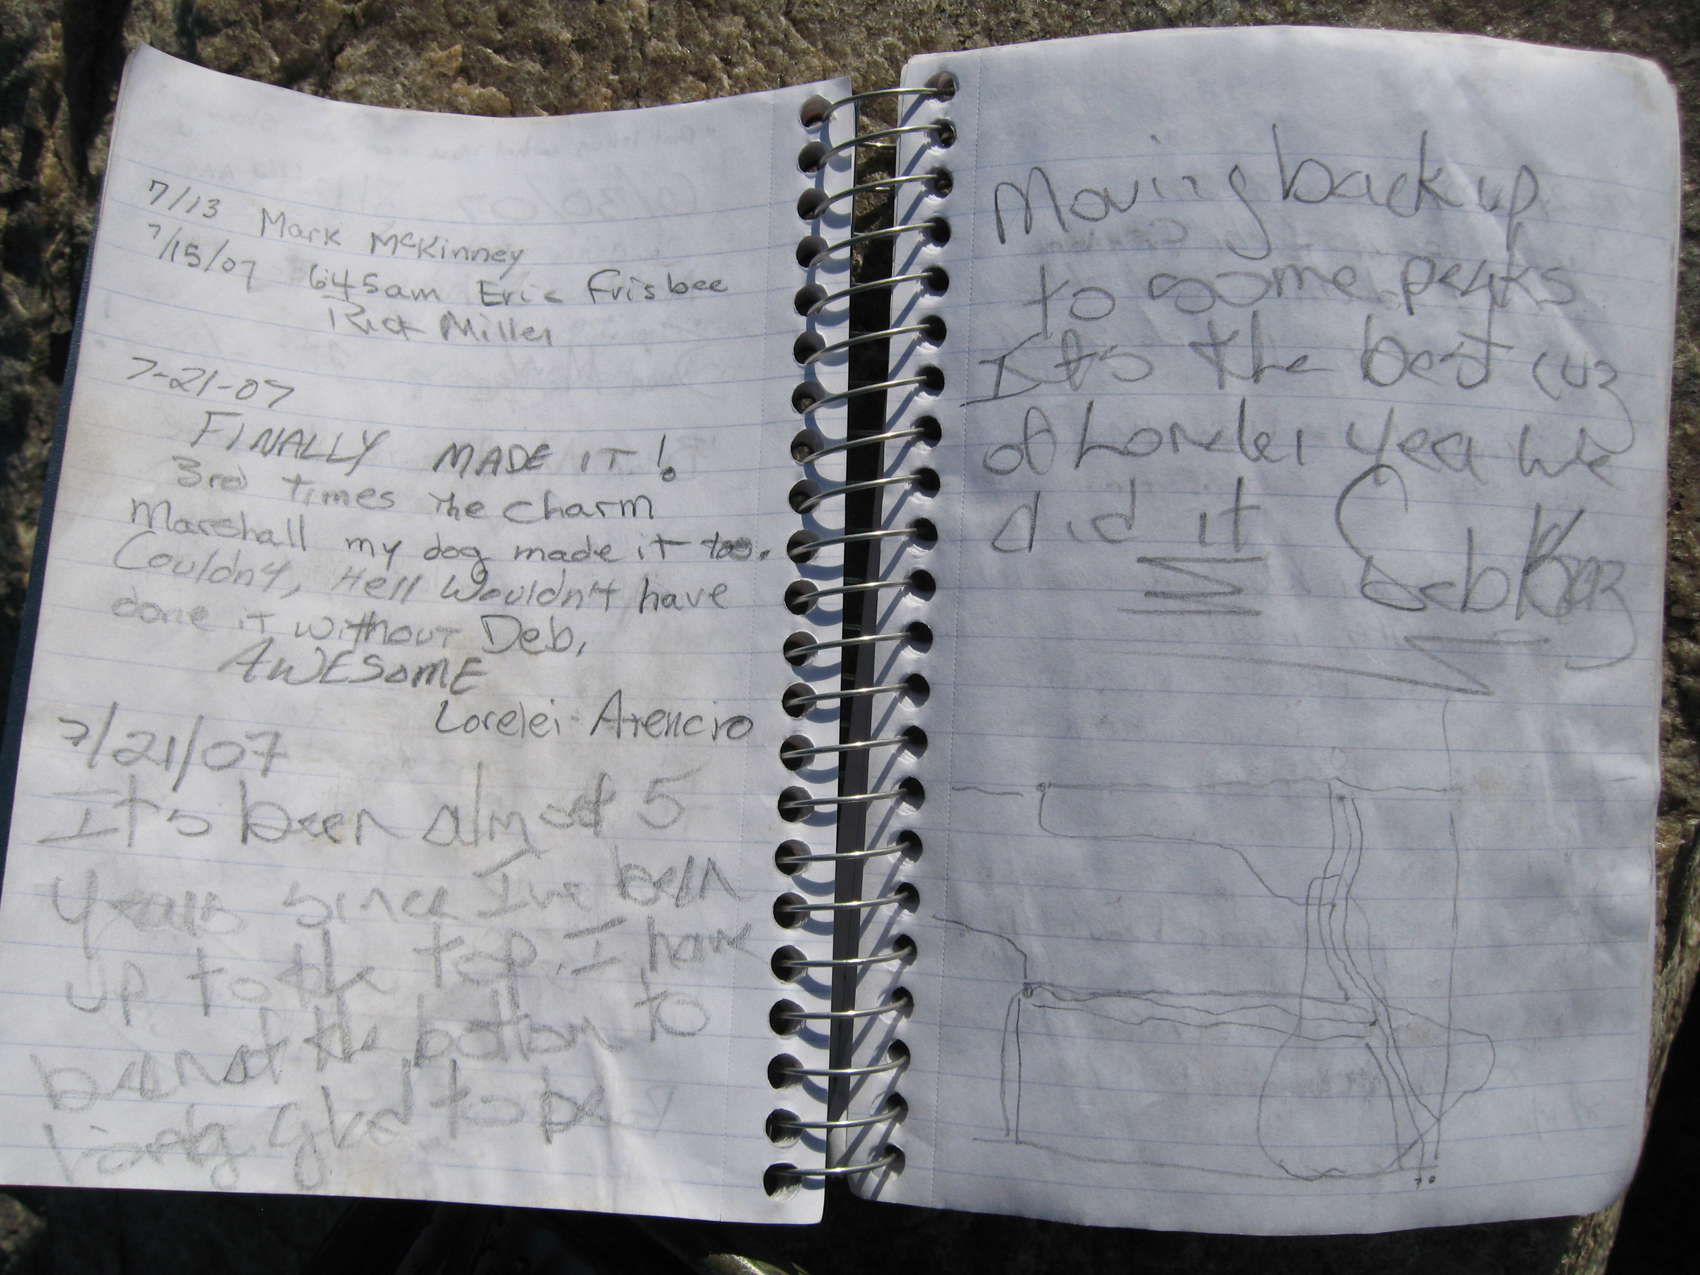 7/13 Mark McKinney
7/15/07 6:45am Eric Frisbee
Rick Miller
7-21-07
FINALLY MADE IT!
3rd times the charm
Marshall my dog made it too.
Couldn't, Hell Wouldn't have
done it without Deb,
AWESOME
Lorelei Atencio
7/21/07
It's been almost 5
years since I've been
up to the top. I have
been at the bottom to
glad to be
Moving back up
to some peaks
It's the best cuz
of Lorelei yea we
did it
Deb